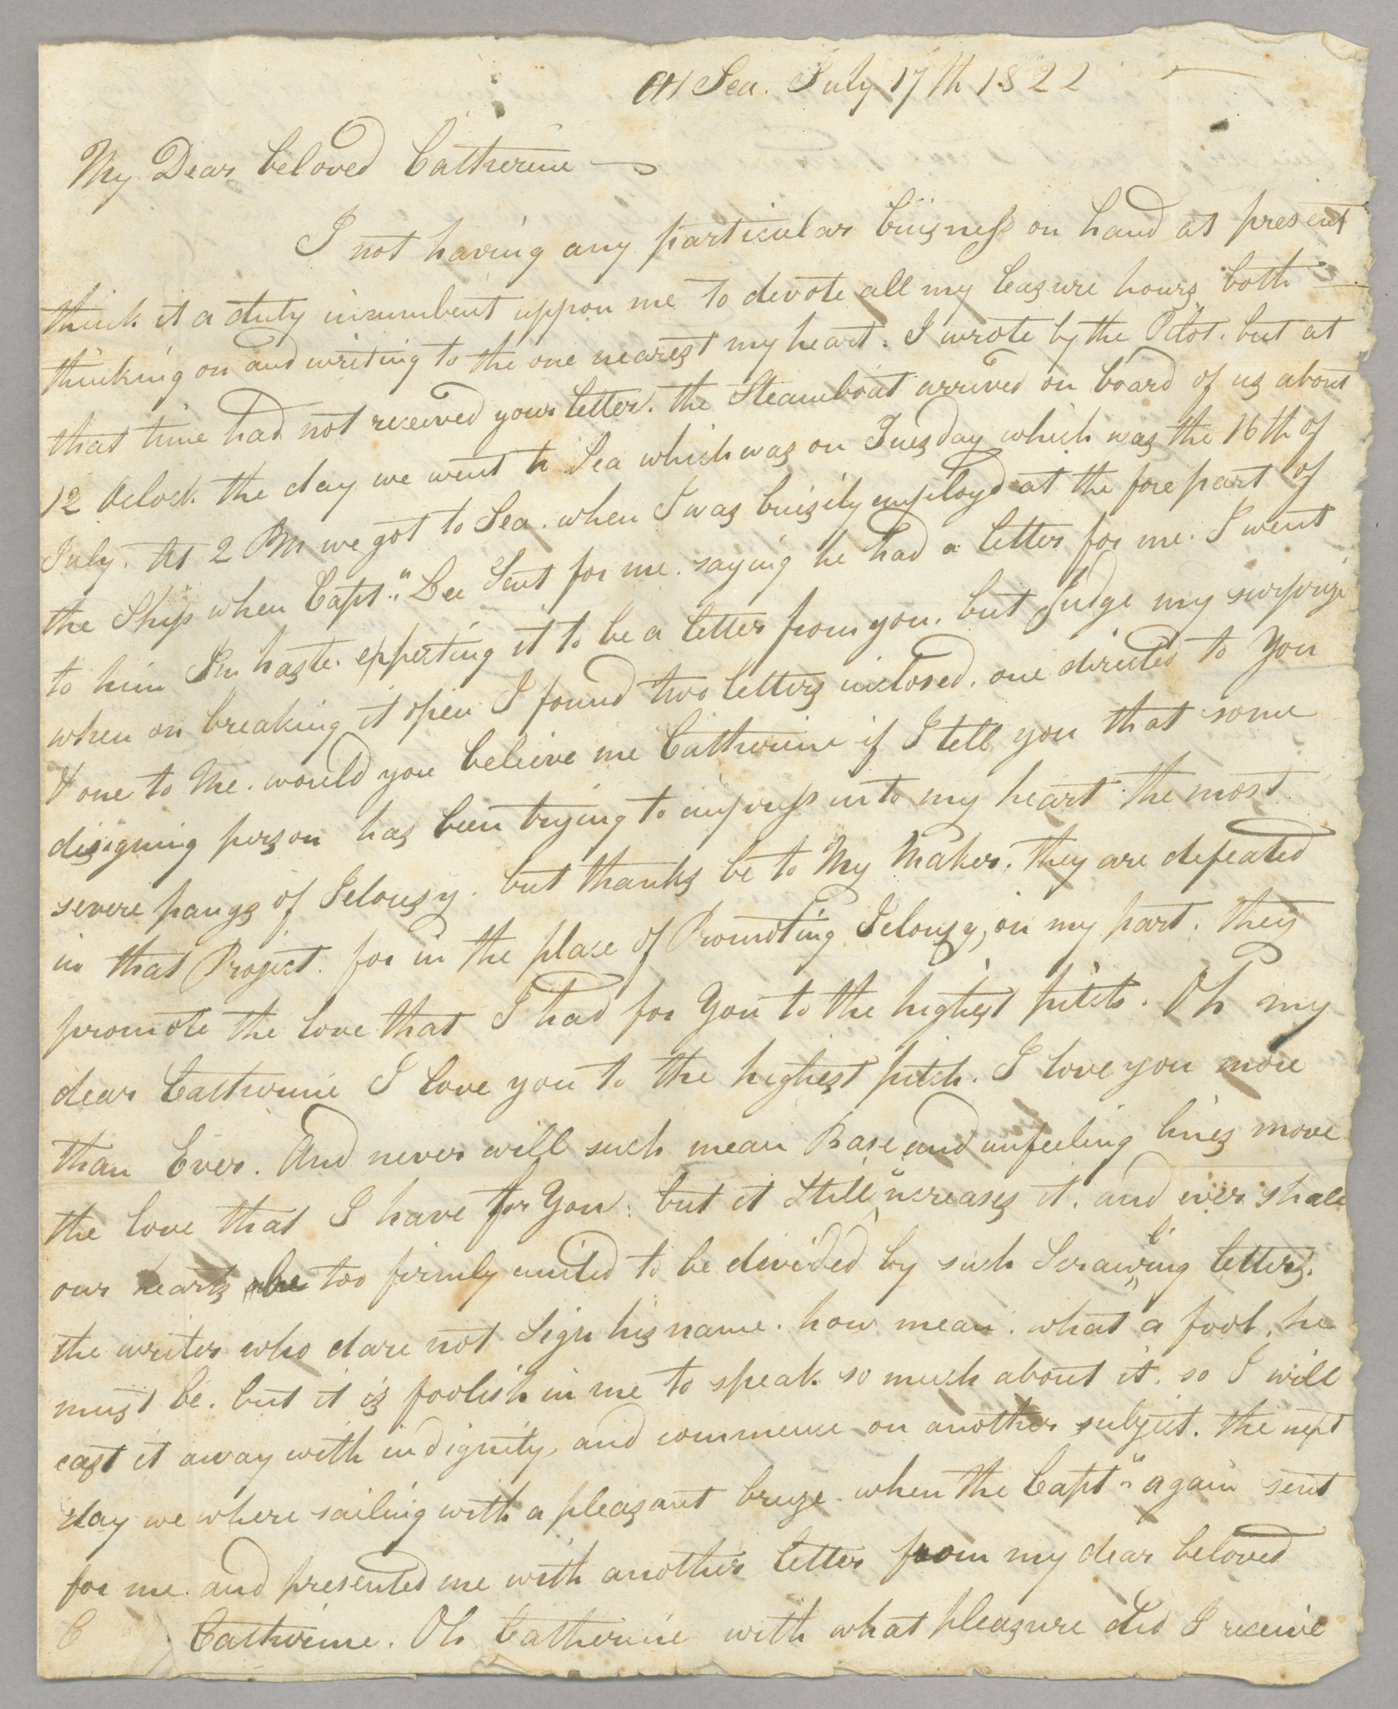 At Sea. July 17th 1822
My Dear beloved Catherine
I not having any particular buisness on hand at present
think it a duty incumbent uppon me to devote all my leasure hours both
thinking on and writing to the one nearest my heart. I wrote by the Pilot. but at
that time had not received your letter. the Steamboat arrived on board of us about
12 Oclock. the day we went to Sea which was on Tuesday which was the 16th of
July. At 2 Pm we got to Sea. when I was buisily employd at the fore part of
the Ship when Capt." Lee Sent for me. saying he had a letter for me. I went
to him In haste. expecting it to be a letter from you. but Judge my surprize
when on breaking it open I found two letters inclosed. one directed to You
& one to Me. would you beleive me Catherine if I tell you that some
disigning person has been trying to impress into my heart the most
severe pangs of Jelousy. but thanks be to My Maker. they are defeated
in that Project. for in the place of Promoting Jelousy, on my part. they
promote the love that I had for You to the highest pitch. Oh my
dear Catherine I love you to the highest pitch. I love you more
than Ever. And never will such mean Base and unfeeling lines move
the love that I have for You. but it Still increases it. and ever shall
our hearts be too firmly united to be divided by such Scrawling letters.
the writer who dare not Sign his name. how mean. what a fool. he
must be. but it is foolish in me to speak so much about it. so I will
cast it away with indignity, and commence on another subject. the next
day we where sailing with a pleasant breze. when the Capt" again sent
for me. and presented me with another letter from my dear beloved
C Catherine. Oh Catherine with what pleasure did I receive